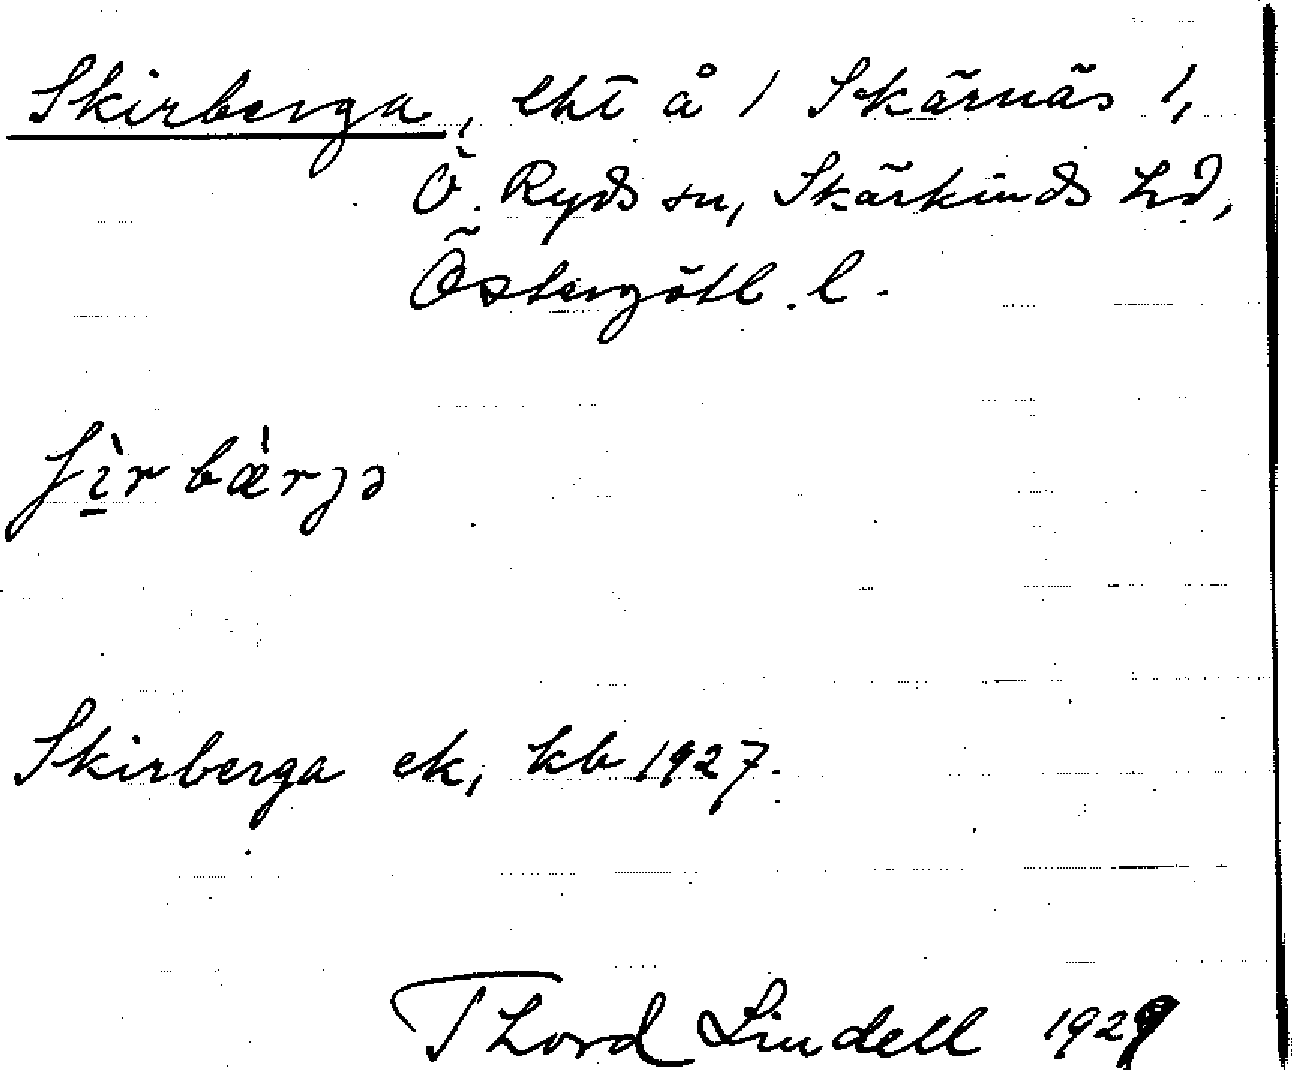 Skirberga, lht å 1 Skärnäs 1,
Ö. Ryds sn, Skärkinds hd,
Östergötl. l.
ʃì̱rbæ̀rjə
Skirberga ek, kb 1927.
Thord Lindell 1929